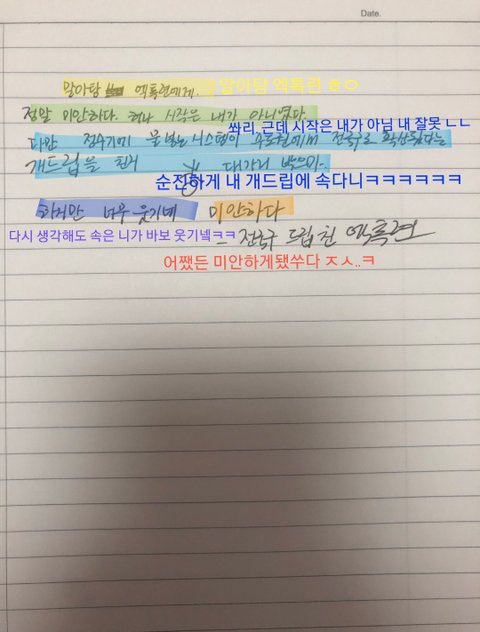 Date.
말아탕 엑톡련에게. 말아탕 엑톡련 ㅎㅇ
정말 미안하다. 허나 시작은 내가 아니였다.
쏴리. 근데 시작은 내가 아님 내 잘못 ㄴㄴ
다만 정수기에 물 넣는 시스템이 전국구로 확산됐다는
개드립을 친거 대가리 박으마..
순전하게 내 개드립에 속다니ㅋㅋㅋㅋㅋㅋ
하지만 너무 웃기네 미안하다
다시 생각해도 속은 니가 바보 웃기넼ㅋㅋ
- 전국구 드립 친 엑톡련
어쨌든 미안하게됐쑤다 ㅈㅅ..ㅋ